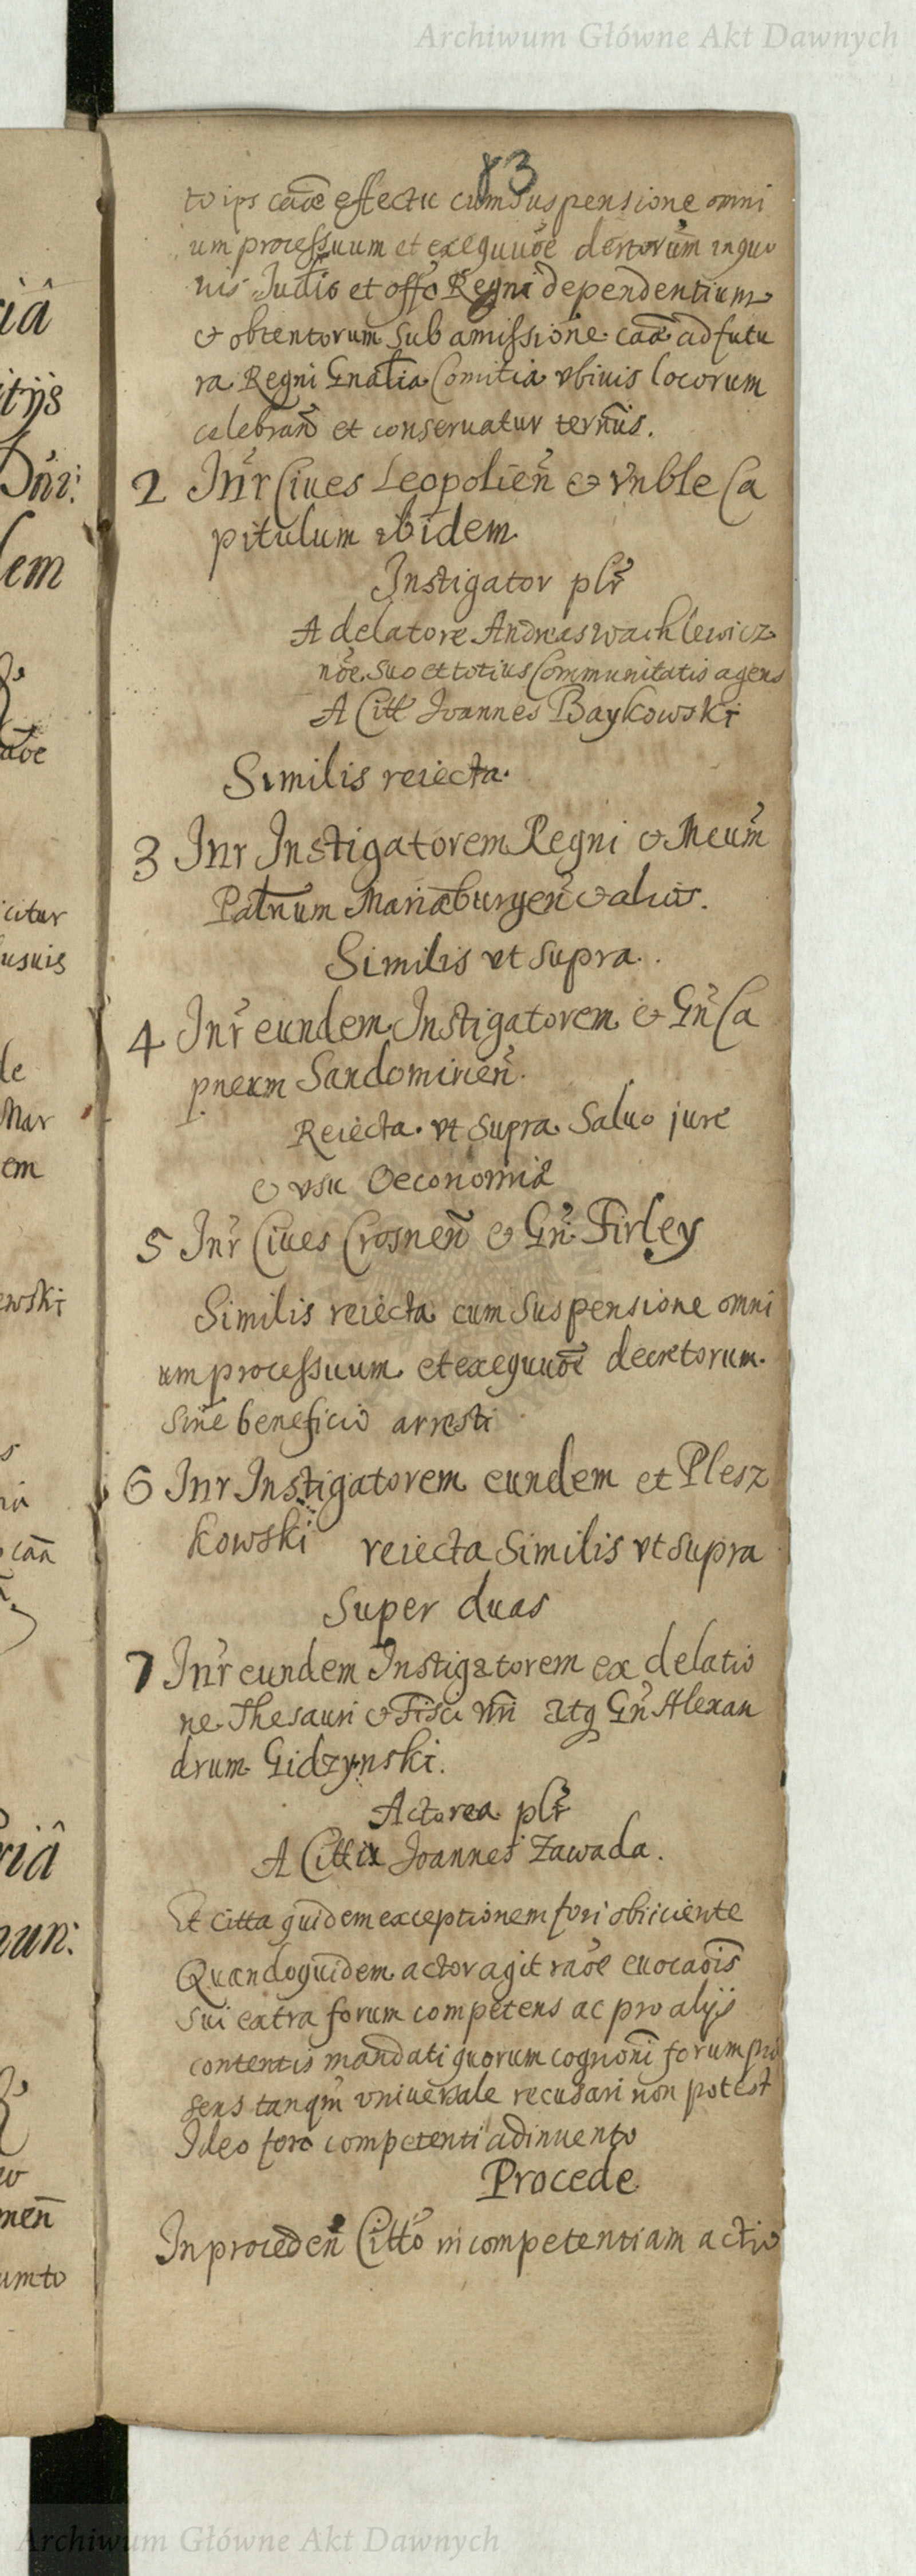 Archiwum Główne Akt Dawnych
83
to ips caåe effectu cum suspensione omni
um processuum et exequuõe dertorum in quo
uis Judio et offo Regni dependentium
& obtentorum sub amissione caã ad futu
ra Regni Gnalia Comitia vbiuis locorum
celebrañ et conseruatur termis.
2 Inr Ciues Leopolieñ & Vnble Ca
pitulum ibidem
Instigator plr
A delatore Andreas Wachlewicz
nõe suo et totius Communitatis agens
A Citt Joannes Baykowski
Similis reiecta.
3 Inr Instigatorem Regni & Mcum
Patnum Mariæburgeñ & alios.
Similis vt supra.
4 Inr eundem Instigatorem & Gñ Ca
pneum Sandomirieñ.
Reiecta vt supra Saluo jure
& vsu Oeconomiæ
5 Inr Ciues Crosneñ & Gñ Firley
Similis reiecta cum suspensione omni
um processuum et exequuõe decretorum.
Sine beneficio arresti
6 Inr Instigatorem eundem et Plesz
kowski reiecta Similis vt supra
Super duas
7 Inr eundem Instigatorem ex delatio
ne Thesauri & Fisci atq Gñ Alexan
drum Gidzynski.
Actorea plr
A Citta Joannes Zawada.
Et Citta quidem exceptionem fori obiiciente
Quandoquidem actor agit raõe euocaõis
sui extra forum competens ac pro alijs
contentis mandati quorum cognoni forum præ
sens tanqm vniuersale recusari non potest
Ideo foro competenti adinuento
Procede
In proceden Citto incompetentiam actio
Archiwum Główne Akt Dawnych